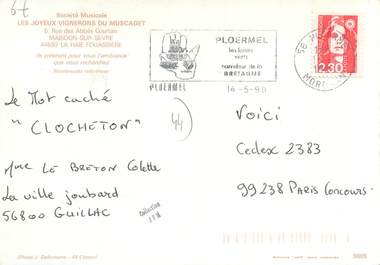 6f
Société Musicale
LES JOYEUX VIGNERONS DU MUSCADET
5, Rue des Abbés Courtais
MAISDON-SUR-SEVRE
44690 LA HAIE FOUASSIERE
Ils prennent pour vous l'ambiance
que vous recherchez
Nombreuses références
PLOERMEL
les loisirs
verts
carrefour de la
BRETAGNE
PLOERMEL
16-5-90
56
MORBIHAN
2,30
Le Mot caché
" CLOCHETON "
44
Mme LE BRETON Colette
La ville joubard
56800 GUILLAC
Collection
Voici
Cedex 2383
99238 PARIS Concours.